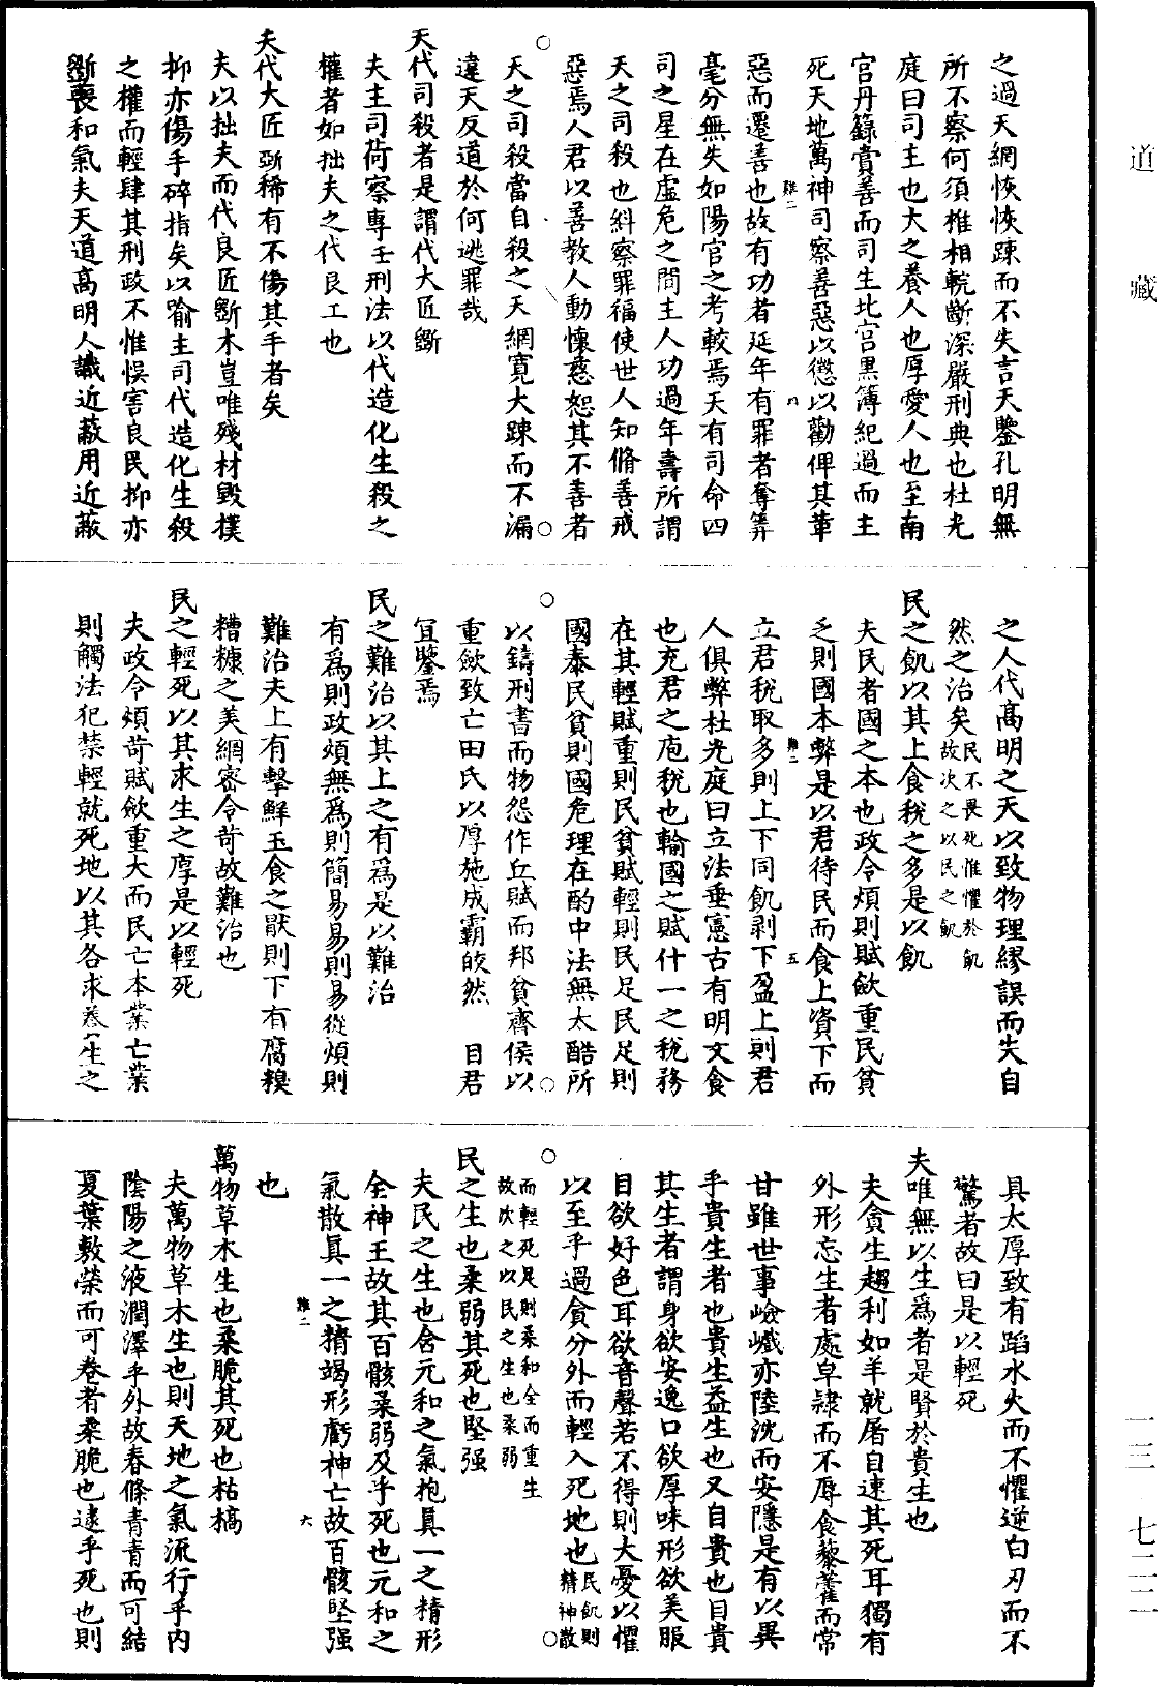 道藏
之過天網恢恢踈而不失言天鑒孔明無
所不察何須椎相輐斷深嚴刑典也杜光
庭曰司主也大之養人也厚愛人也至南
宫丹籙賞善而司生北宫黑簿紀過而主
死天地萬神司察善惡以懲以勸俾其革
惡而遷善也故有功者延年有罪者奪筭
毫分無失如陽官之考較焉天有司命四
司之星在虛危之間主人功過年壽所謂
天之司殺也糾察罪福使世人知脩善戒
惡焉人君以善教人動懷慈恕其不善者
天之司殺當自殺之天網寬大踈而不漏
違天反道於何逃罪哉
夫代司殺者是謂代大匠斲
夫主司荷察專壬刑法以代造化生殺之
權者如拙夫之代良工也
夫代大匠斲稀有不傷其手者矣
夫以拙夫而代良匠斲木豈唯殘材毁樸
抑亦傷手碎指矣以踰主司代造化生殺
之權而輕肆其刑政不惟悮害良民抑亦
斲喪和氣夫天道高明人識近蔽用近蔽
之人代高明之天以致物理繆誤而失自
然之治矣民不畏死惟懼於飢
故次之以民之飢
民之飢以其上食稅之多是以飢
夫民者國之本也政令煩則賦歛重民貧
乏則國本弊是以君待民而食上資下而
立君稅取多則上下同飢剥下盈上則君
人俱弊杜光庭曰立法垂憲古有明文食
也充君之庖稅也輸國之賦什一之稅務
在其輕賦重則民貧賦輕則民足民足則
國泰民貧則國危理在酌中法無太酷所
以鑄刑書而物怨作丘賦而邦貧齊侯以
重歛致亡田氏以厚施成霸皎然 目君
宜鑒焉
民之難治以其上之有為是以難治
有為則政煩無為則簡易易則易從煩則
難治夫上有擊鮮玉食之猒則下有腐糗
糟糠之美網密令苛故難治也
民之輕死以其求生之厚是以輕死
夫政令煩苛賦歛重大而民亡本業亡業
則觸法犯禁輕就死地以其各求養生之
具太厚致有蹈水火而不懼逆白刃而不
驚者故曰是以輕死
夫唯無以生為者是賢於貴生也
夫貪生趨利如羊就屠自速其死耳獨有
外形忘生者處皁隸而不辱食藜藿而常
甘雖世事嶮巇亦陸沈而安隱是有以異
乎貴生者也貴生益生也又自貴也目貴
其生者謂身欲安逸口欲厚味形欲美服
目欲好色耳欲音聲若不得則大憂以懼
以至乎過貪分外而輕入死地也民飢則精神散
而輕死足則柔和全而重生
故次之以民之生也柔弱
民之生也柔弱其死也堅强
夫民之生也含元和之氣抱真一之精形
全神王故其百骸柔弱及乎死也元和之
氣散真一之精竭形虧神亡故百骸堅强
也
萬物草木生也柔脆其死也枯槁
夫萬物草木生也則天地之氣流行乎内
陰陽之液潤澤乎外故春條青青而可結
夏葉敷榮而可卷者柔脆也逮乎死也則
一三 七二二